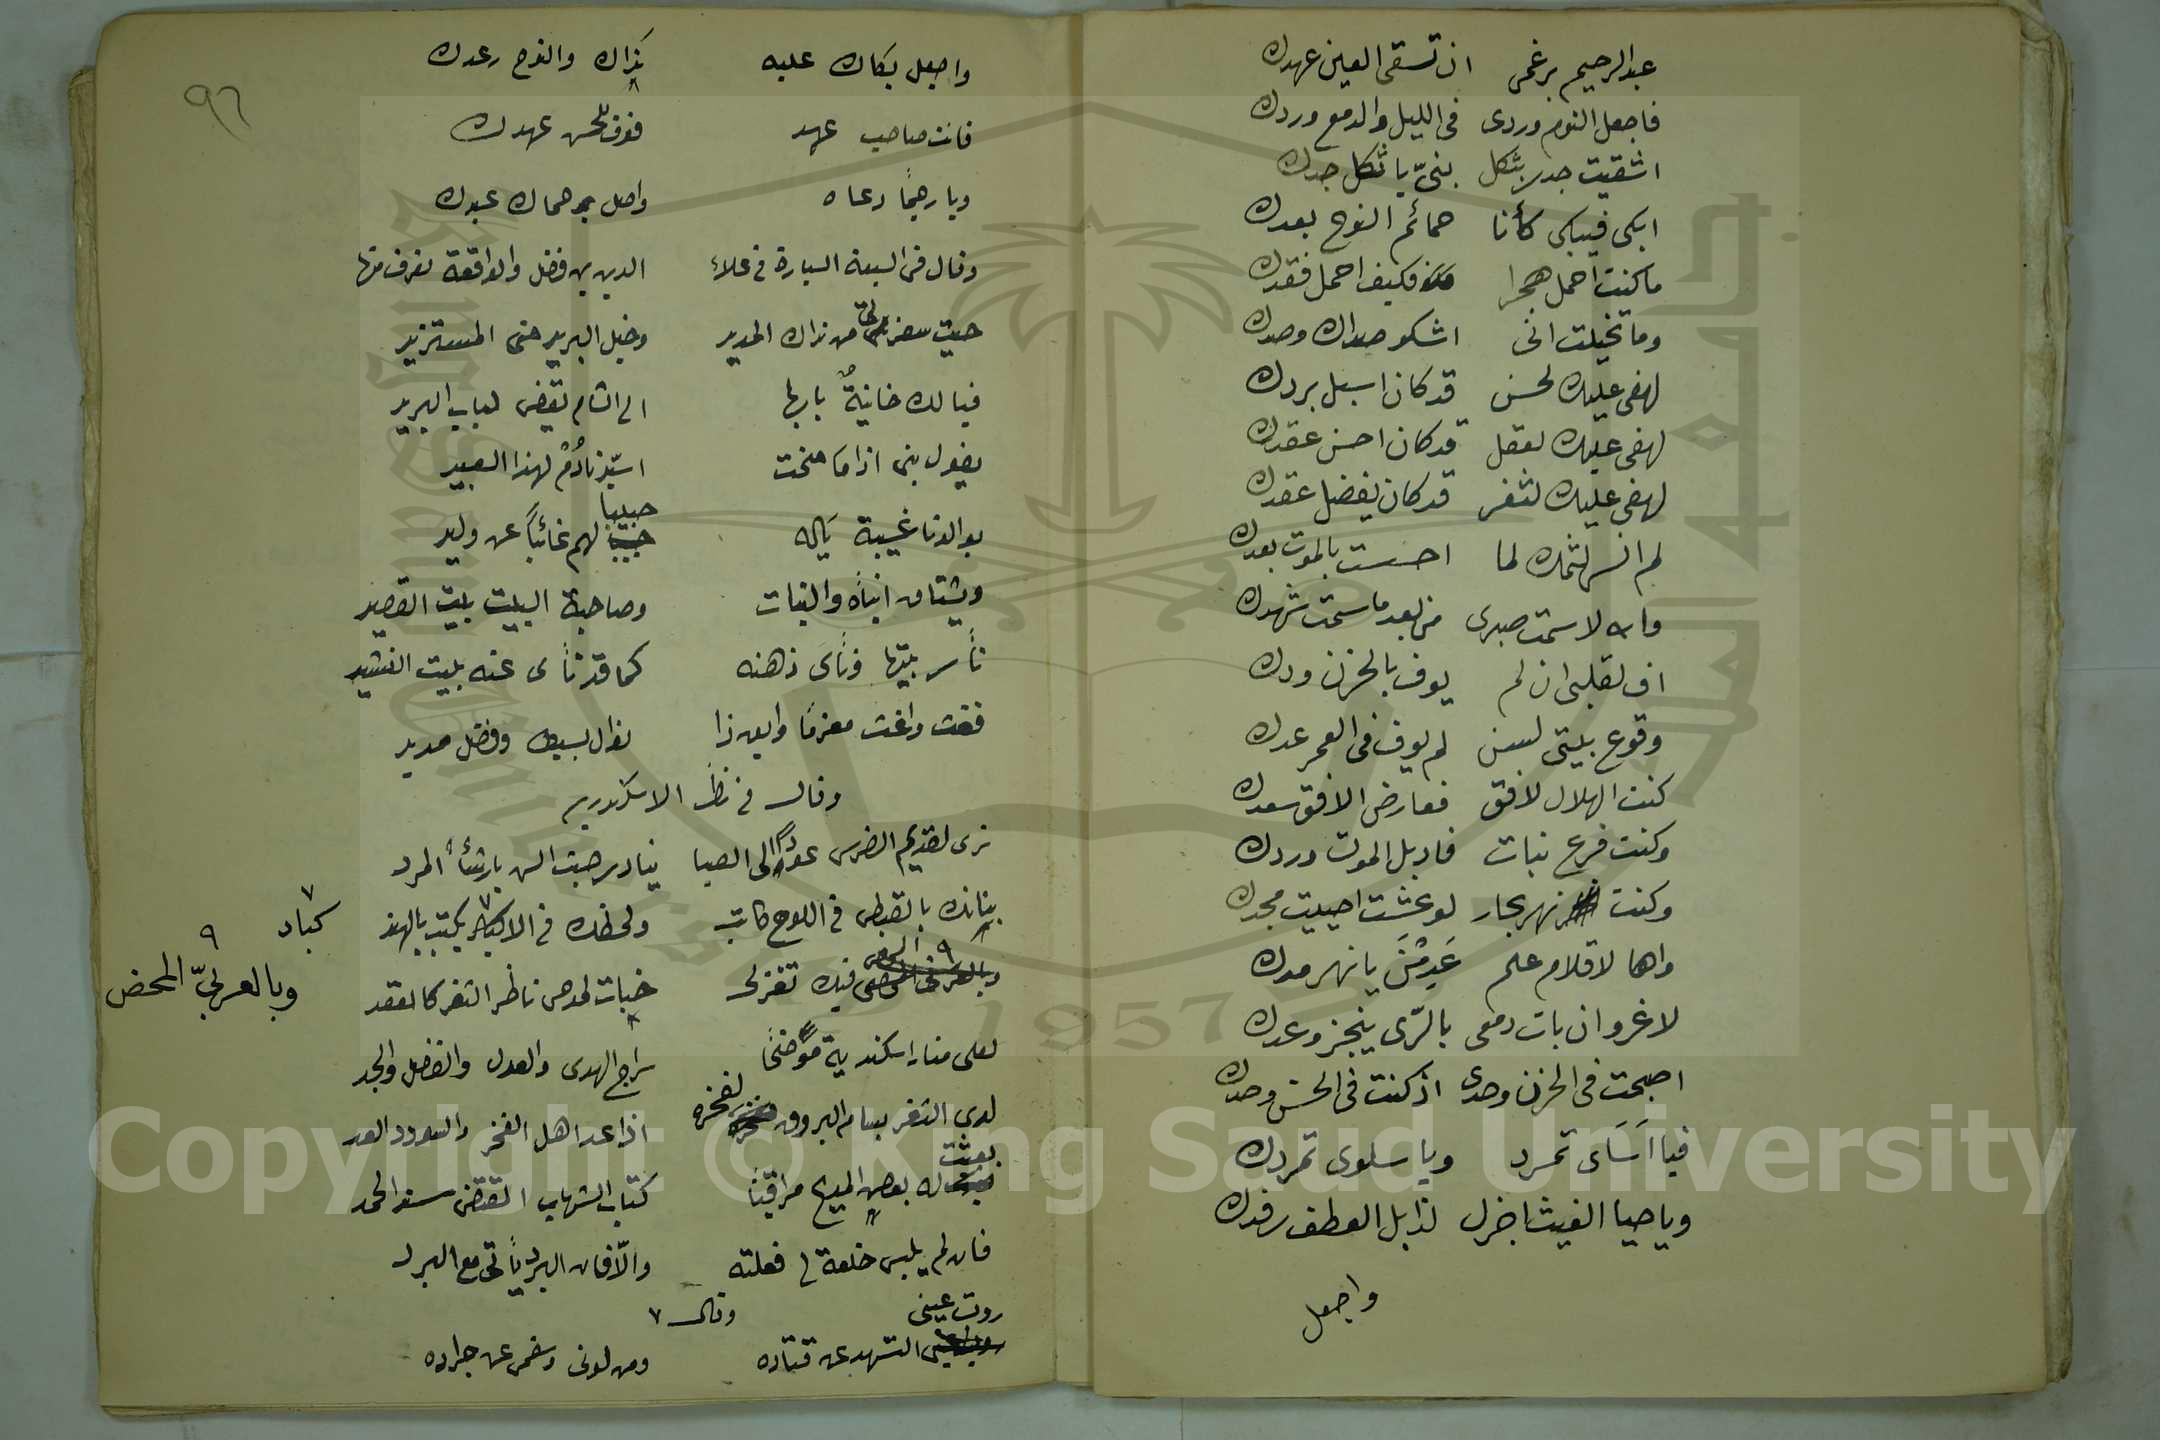 عبد الرحيم برغمى ان تسقى العين عهدك
فاجعل النوم وردى فى الليل والدمع وردك
اشقيت جدى بثكل بنىّ يا ثكل جدك
ابكى فيبكى كأنا حمائم النوح بعدك
ما كنت احمل هجرا فكيف احمل فقدك
وما تخيلت انى اشكو صداك وصدك
لهفى عليك لحسن قد كان اسبل بردك
لهفى عليك لعقل قد كان احسن عقدك
لهفى عليك لثغر قد كان يفضل عقدك
لم انس لثمك لما احسست بالموت بعدك
والله لا سمت صبرى من بعد ما سمت شهدك
اف لقلبى ان لم يوف بالحزن ودك
وقوع بيتى لسن لم يوف فى العمر عدك
كنت الهلال لافق فعارض الافق سعدك
وكنت فرع نبات فاذبل الموت وردك
وكنت نهر بحار لو عشت احييت مجدك
واها لاقلام علم عَدِمْنَ يا نهر مدك
لا غرو ان بات دمعى بالرّى ينجز وعدك
اصبحت فى الحزن وحدى اذ كنت فى الحسن وحدك
فيا اَسَاى تمرد ويا سلوى تمردك
ويا حيا الغيث اجزل لذابل العطف رفدك
واجعل
٩٦
واجعل بكاك عليه بذاك والنوح رعدك
فانت صاحب عهد فوف للحسن عهدك
ويا رحيمًا دعاه واصل برحماك عبدك
وقال فى السبعة السيارة فى علاء الدين بن فضل والواقعة تعرف منها
من نداك المديد وخيل البريد حتى المستزيد
فيا لك خانيةٌ بابها الى الشام يفضى لباب البريد
يقول بنى اذا ما
بوالدنا غيبة ياله حبيبا لهم غائبًا عن وليد
ويشتاق ابناه والبنات وصاحبة البيت بيت القصيد
نأى بيتها ونأى ذهنه كما قد نأى عنه بيت النشيد
نوال بسيط وفضل مديد
وقال فى ناظر الاسكندرية
ترى لقديم الضرس عودًا الى الصبا
بنانك بالقبطى فى اللوح كاتب ولحظك فى الاكباد يكتب بالهند
كباد
٧
وبالعربىّ المحض
٩
فيك تغزلى ناظر الثغر كالعقد
لعلى منار اسكندرية موضحًا سراج الهدى والعدل والفضل والمجد
لدى الثغر بسام البروق لفخره اذا عد اهل الفخر والسودد العد
بعثت له بعض المديح مراقبًا كتاب الشهاب
فان لم يلبس خلعة لى فعلته والّا فان البرد يأتى مع البرد
وقال
روت عينى التسهد عن قتاده ومن لونى وسقمى عن جراده